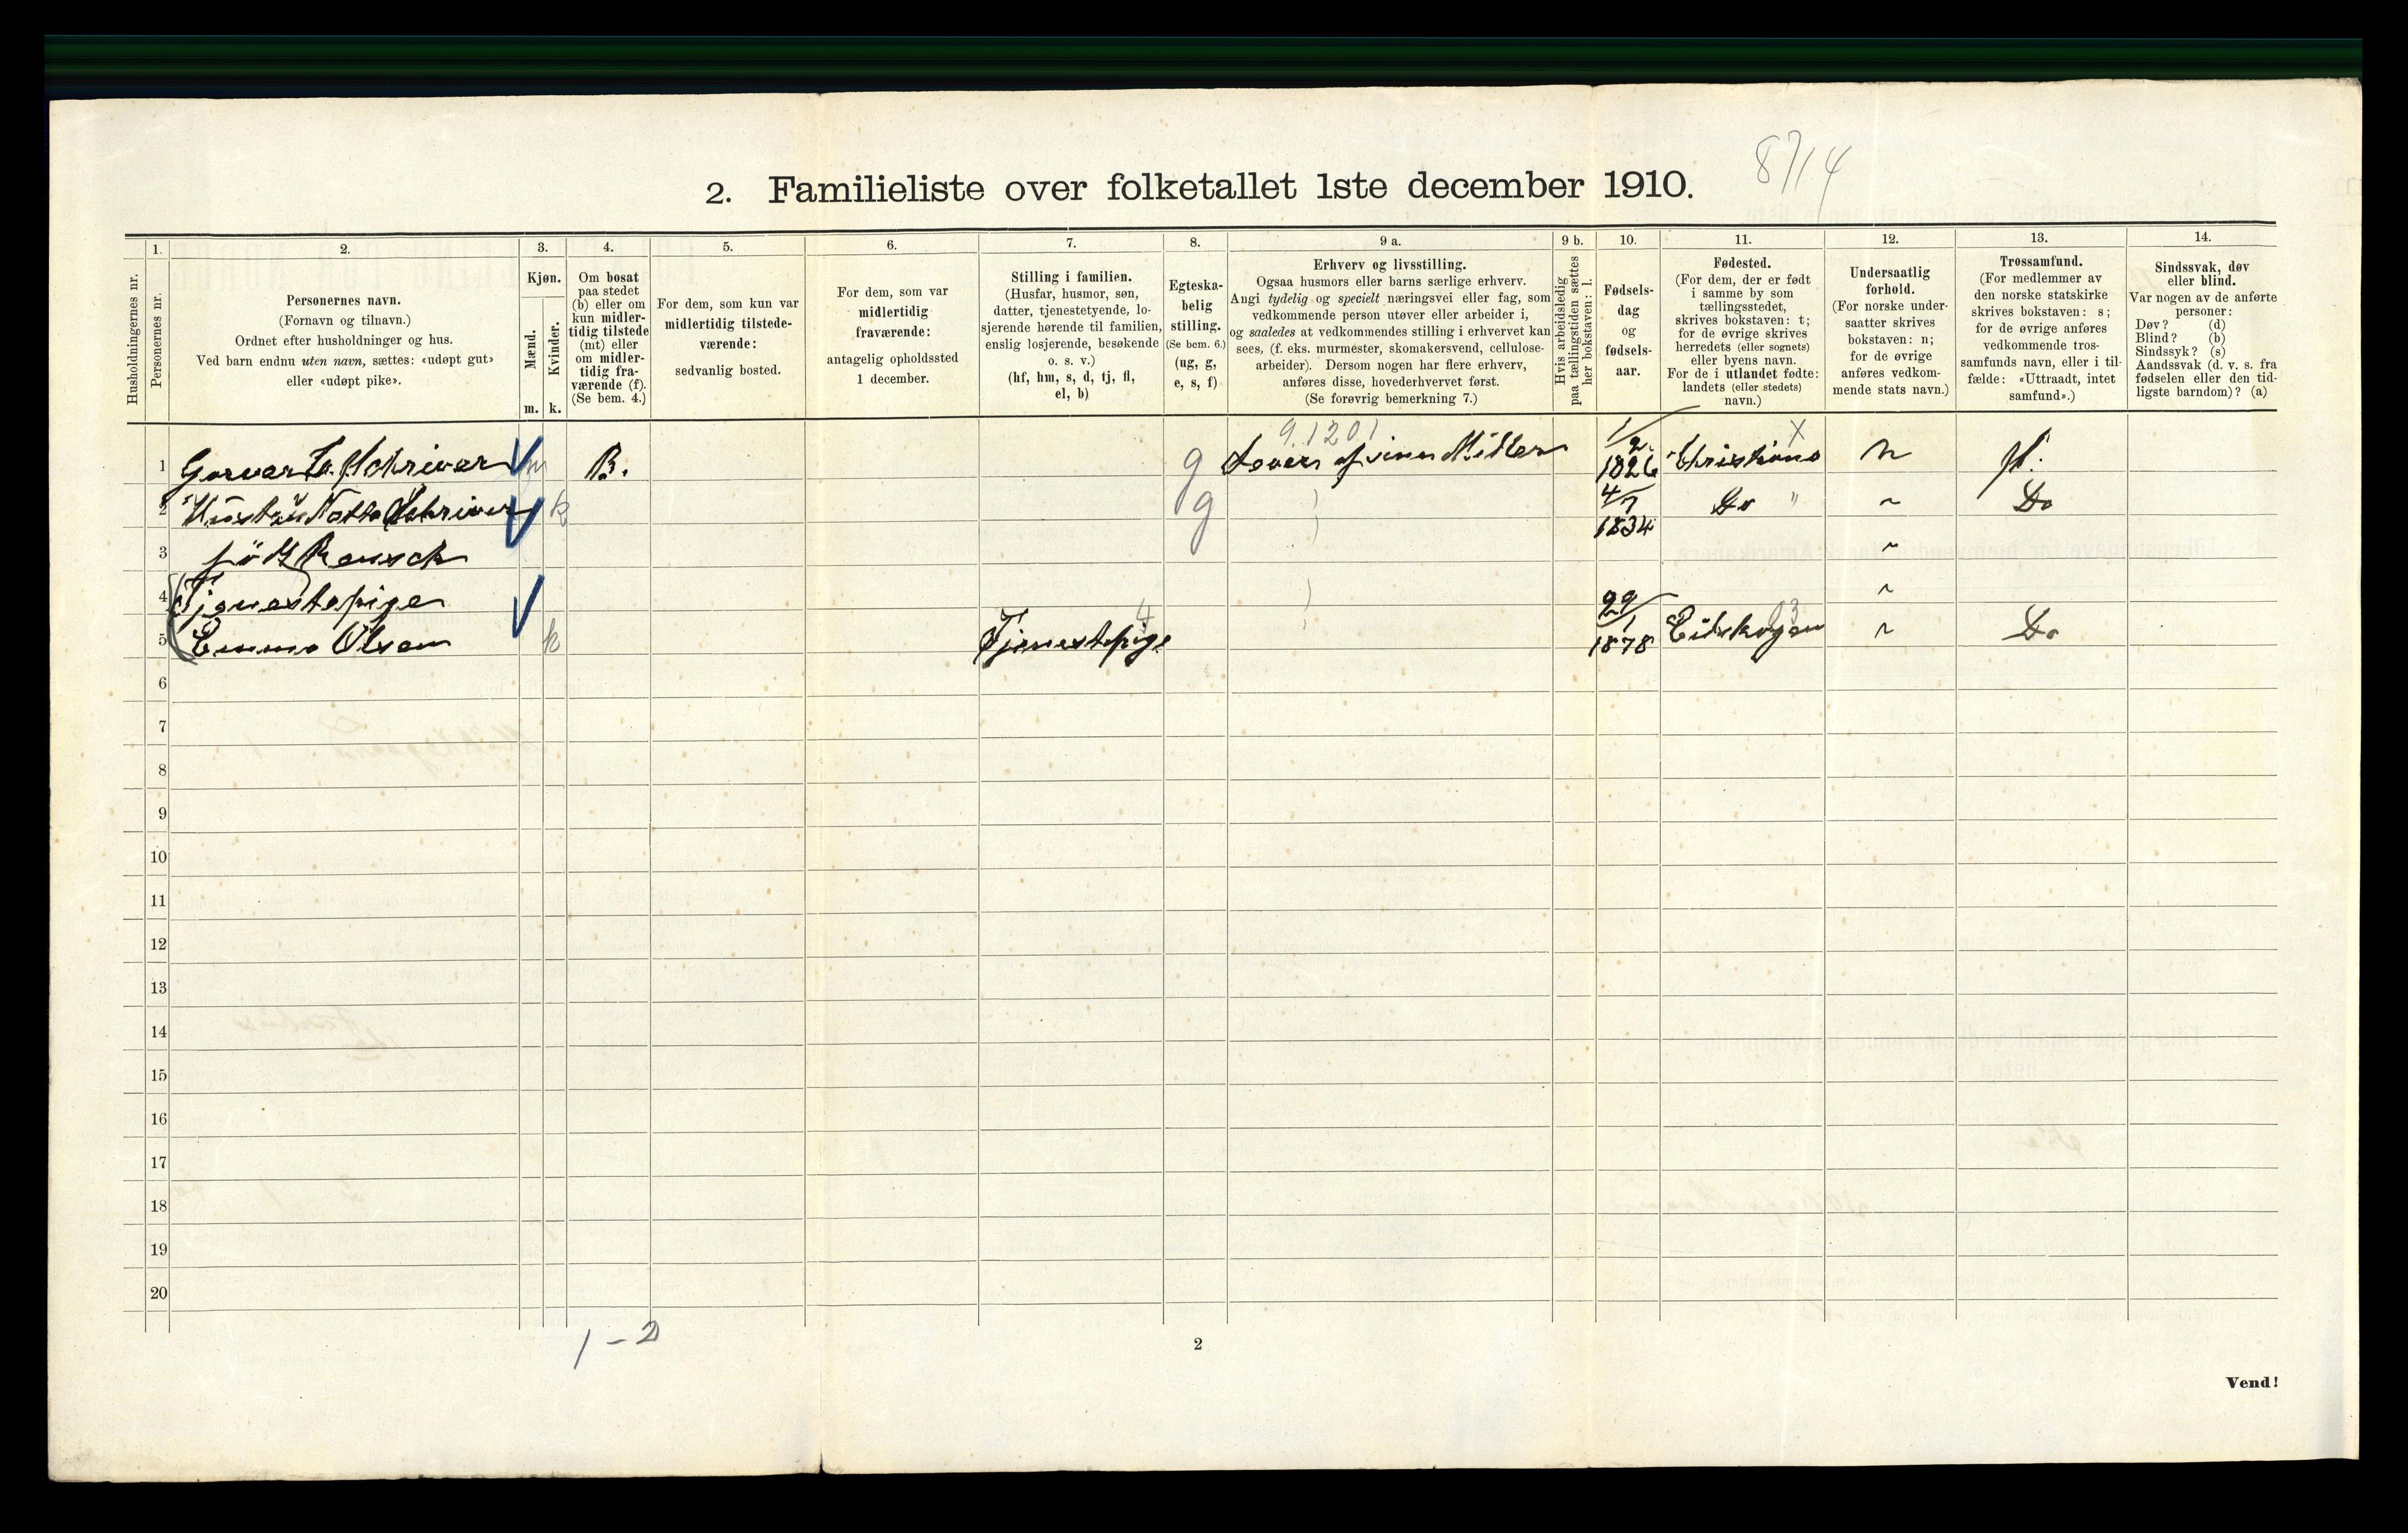 8714
2. Familieliste over folketallet 1ste december 1910.
Husholdningernes nr.
1.
Personernes nr.
2.
Personernes navn.
(Fornavn og tilnavn.)
Ordnet efter husholdninger og hus.
Ved barn endnu uten navn, sættes: «udøpt gut»
eller «udøpt pike».
3.
Kjøn.
Mænd.
Kvinder.
m. k.
4.
Om bosat
paa stedet
(b) eller om
kun midler-
tidig tilstede
(mt) eller
om midler-
tidig fra-
værende (f).
(Se bem. 4.)
5.
For dem, som kun var
midlertidig tilstede-
værende:
sedvanlig bosted.
6.
For dem, som var
midlertidig
fraværende:
antagelig opholdssted
1 december.
7.
Stilling i familien.
(Husfar, husmor, søn,
datter, tjenestetyende, lo-
sjerende hørende til familien,
enslig losjerende, besøkende
o. s. v.)
(hf, hm, s, d, tj, fl,
el, b)
8.
Egteska-
belig
stilling.
(Se bem. 6.)
(ug, g,
e, s, f)
9 a.
Erhverv og livsstilling.
Ogsaa husmors eller barns særlige erhverv.
Angi tydelig og specielt næringsvei eller fag, som
vedkommende person utøver eller arbeider i,
og saaledes at vedkommendes stilling i erhvervet kan
sees, (f. eks. murmester, skomakersvend, cellulose-
arbeider). Dersom nogen har flere erhverv,
anføres disse, hovederhvervet først.
(Se forøvrig bemerkning 7.)
9 b.
Hvis arbeidsledig
paa tællingstiden sættes
her bokstaven: l.
10.
Fødsels-
dag
og
fødsels-
aar.
11.
Fødested.
(For dem, der er født
i samme by som
tællingsstedet,
skrives bokstaven: t;
for de øvrige skrives
herredets (eller sognets)
eller byens navn.
For de i utlandet fødte:
landets (eller stedets)
navn.)
12.
Undersaatlig
forhold.
(For norske under-
saatter skrives
bokstaven: n;
for de øvrige
anføres vedkom-
mende stats navn.)
13.
Trossamfund.
(For medlemmer av
den norske statskirke
skrives bokstaven: s;
for de øvrige anføres
vedkommende tros-
samfunds navn, eller i til-
fælde: «Uttraadt, intet
samfund».)
14.
Sindssvak, døv
eller blind.
Var nogen av de anførte
personer:
Døv? (d)
Blind? (b)
Sindssyk? (s)
Aandssvak (d. v. s. fra
fødselen eller den tid-
ligste barndom)? (a)
1 Schriver m B. g 9.1201 Lever af sine Midler 1/2 1826 Christiania X n
2 Hustru Schriver k g 4/7 1834 Do " Do
3 född Rausch
4 Tjenestepige
5 Emma Olsen k Tjenestepige 4 29/1 1878 Eidskogen 03 Do
6
7
8
9
10
11
12
13
14
15
16
17
18
19
20
1 – 2
2
Vend!